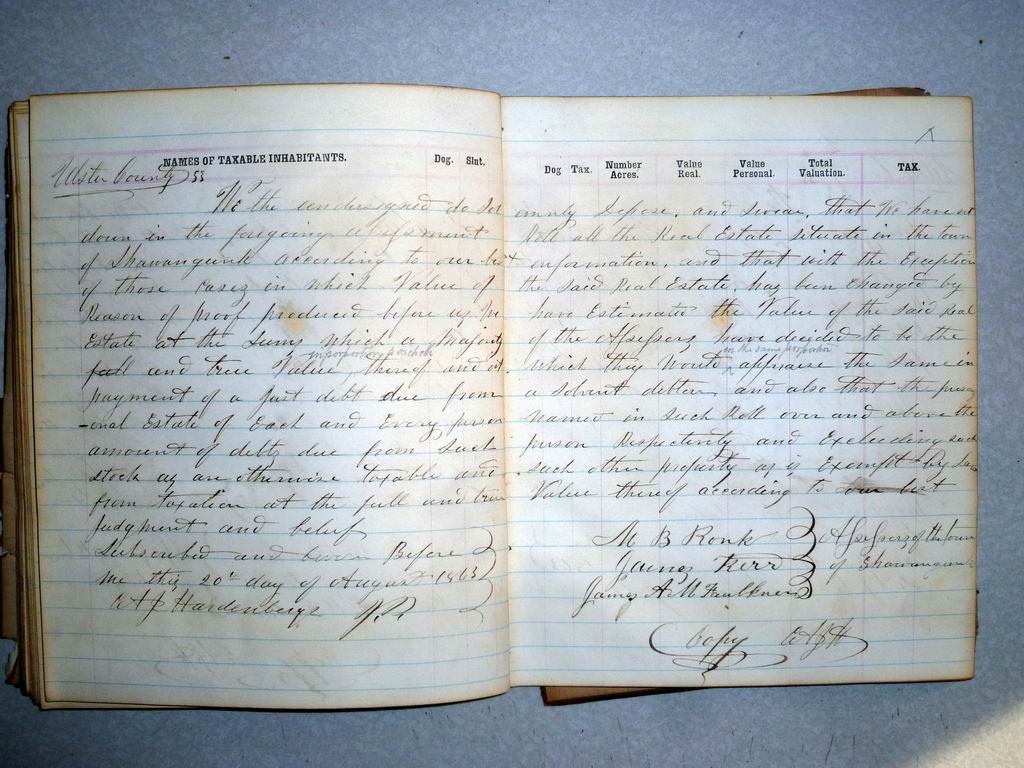 NAMES OF TAXABLE INHABITANTS. Dog. Slut. Dog Tax. Number Acres. Value Real. Value Personal. Total Valuation. TAX.
Ulster County SS
We the undersigned do Solemnly Depose, and swear, that We have set
down in the foregoing assessment Roll all the Real Estate situate in the town
of Shawangunk according to our best information, and that with the Exception
of those cases in which Value of the said Real Estate, has been changed by
Reason of proof produced before us We have Estimated the Value of the said Real
Estate at the Sums which a Majority of the Assessors have decided to be the
in proportion in the same proportion
full and true Value, thereof and at which they would appraise the same in
payment of a just debt due from a solvent debtor, and also that the
-onal Estate of Each and Every person named in such Roll over and above the
amount of debts due from such person Respectively and Excluding such
stock as are otherwise taxable and such other property as is Exempt by law
from taxation at the full and true Value thereof according to our best
Judgment and belief
Subscribed and sworn Before
me this 20th day of August 1863
Hardenbergh J.P.
M B Ronk
James Kerr
James A McFaulkner
Assessors of the town
of Shawangunk
Copy